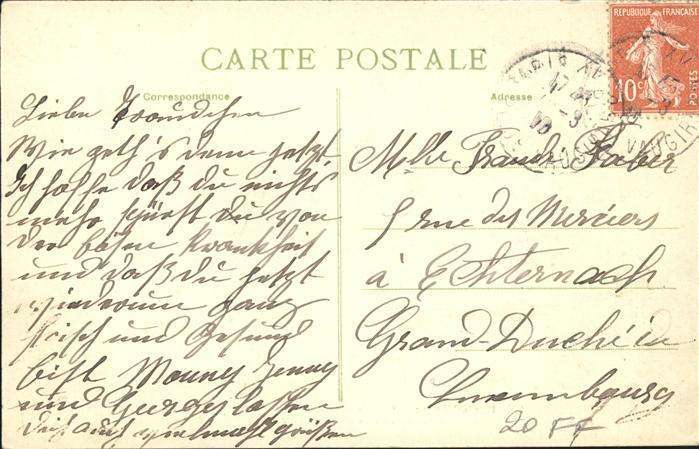 CARTE POSTALE
REPUBLIQUE FRANÇAISE
10c
POSTES
Correspondance
Adresse
Liebe
Wie geht's denn jetzt
Ich hoffe daß du nichts
mehr spürst du von
der bösen Krankheit
und daß du jetzt
wiederum ganz
frisch und Gesund
bist Jenny
und Georges lassen
dich auch vielmals grüßen
Mlle Faber
5 rue des Merciers
à Echternach
Grand-Duché de
Luxembourg
20 FF